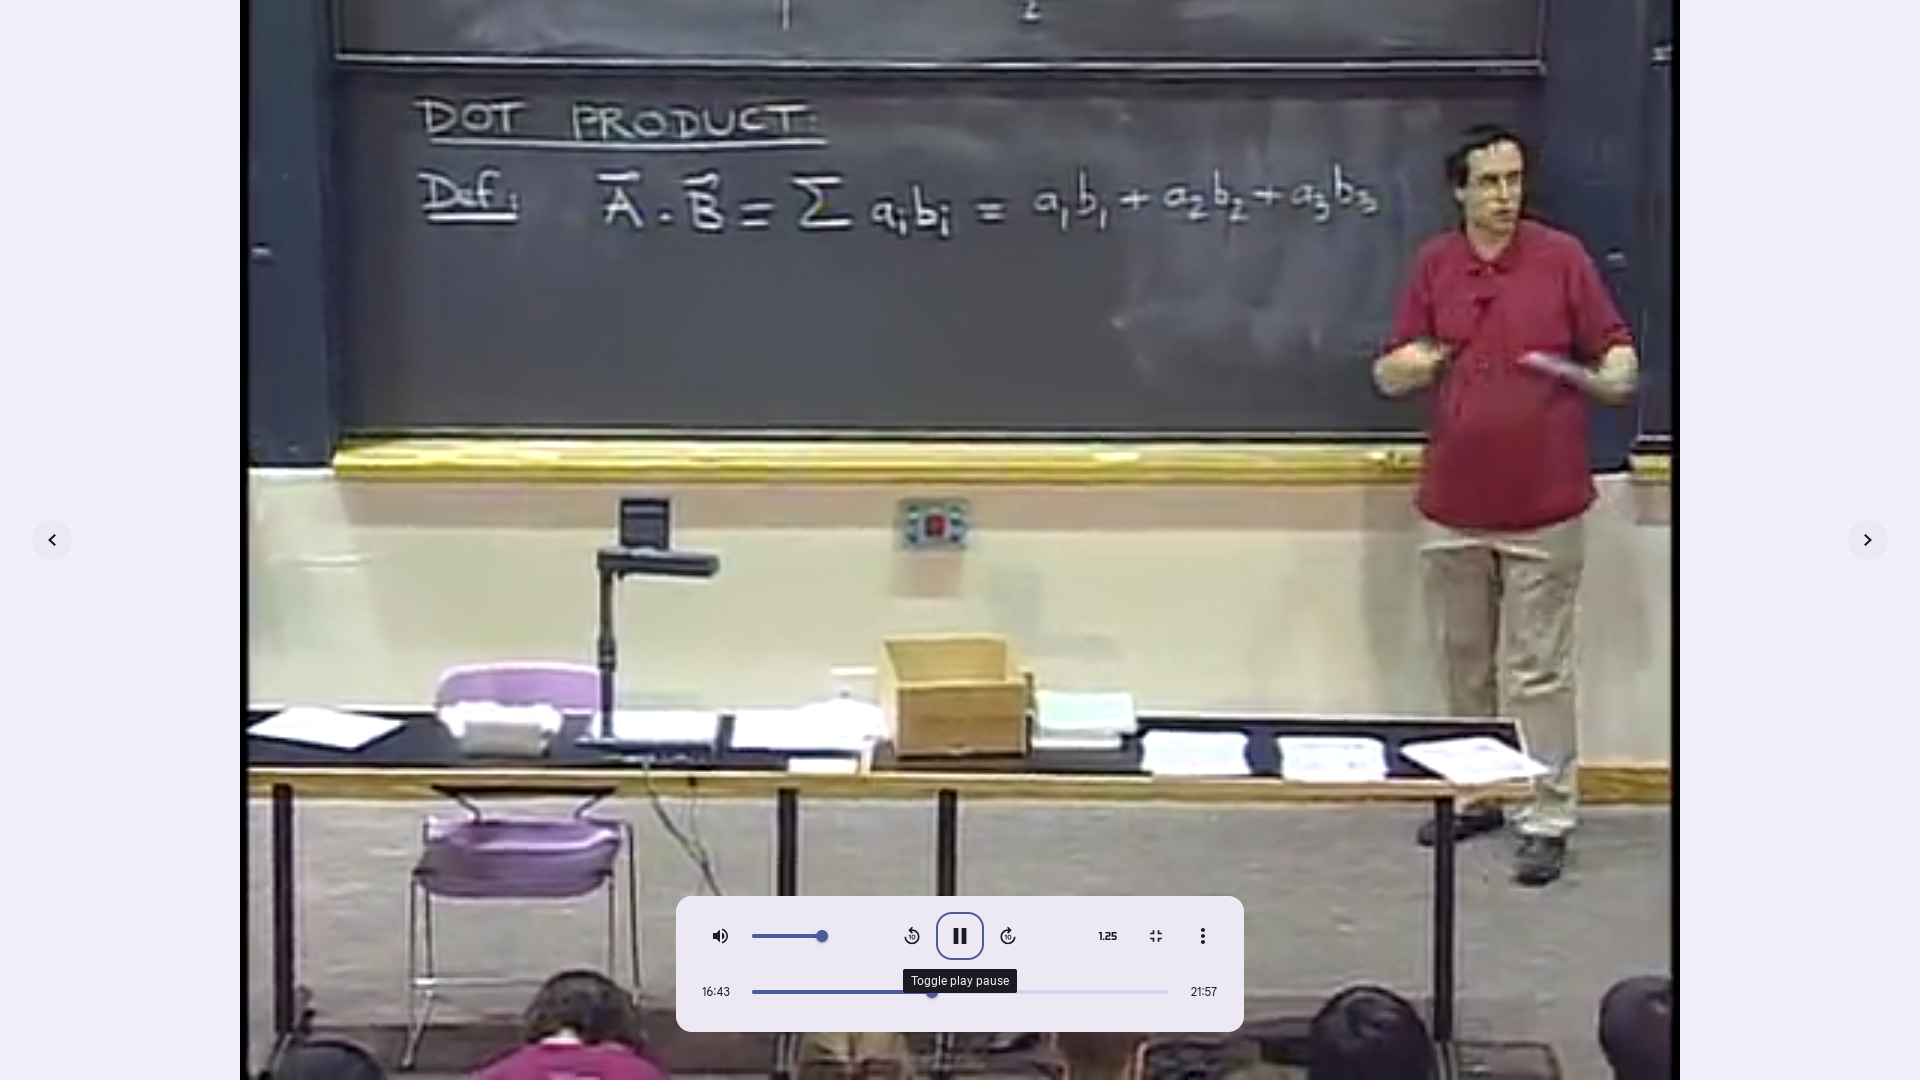 2
DOT PRODUCT:
Def: A⃗ · B⃗ = Σ aᵢbᵢ = a₁b₁ + a₂b₂ + a₃b₃
10 10 1.25
Toggle play pause
16:43 21:57